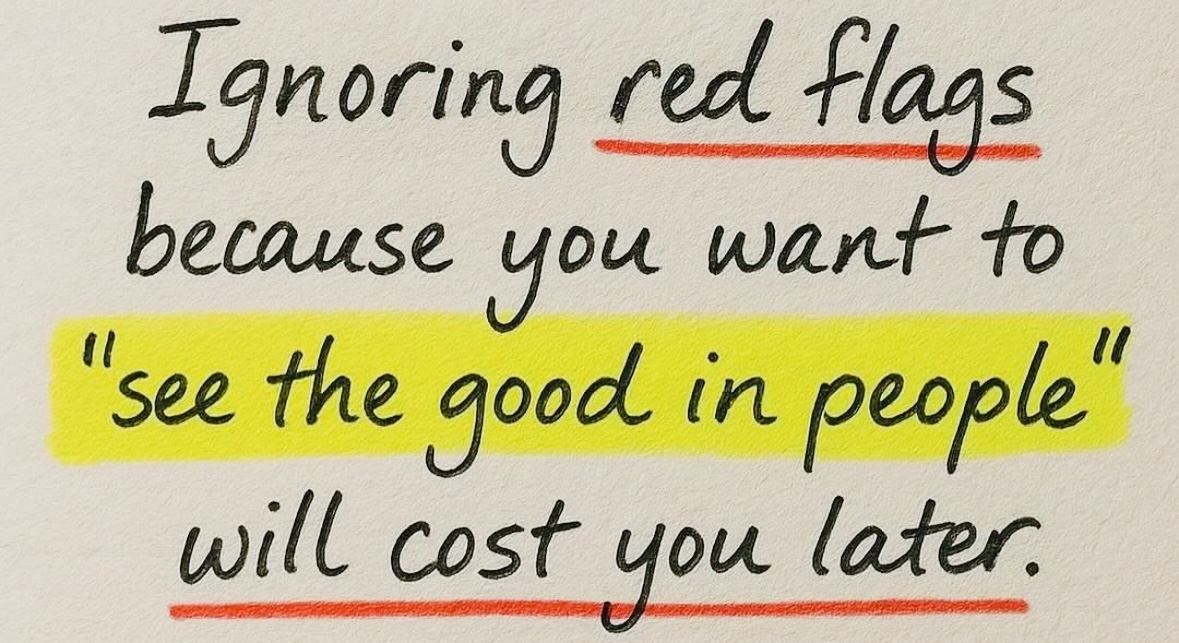 Ignoring red flags
because you want to
"see the good in people"
will cost you later.